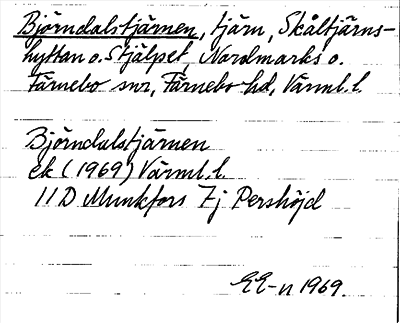 Björndalstjärnen, tjärn, Skåltjärns-
hyttan o. Stjälpet, Nordmarks o.
Färnebo snr, Färnebo hd, Värml. l.
Björndalstjärnen
ek (1969) Värml. l.
11D Munkfors 7j Pershöjd
EE-n 1969.